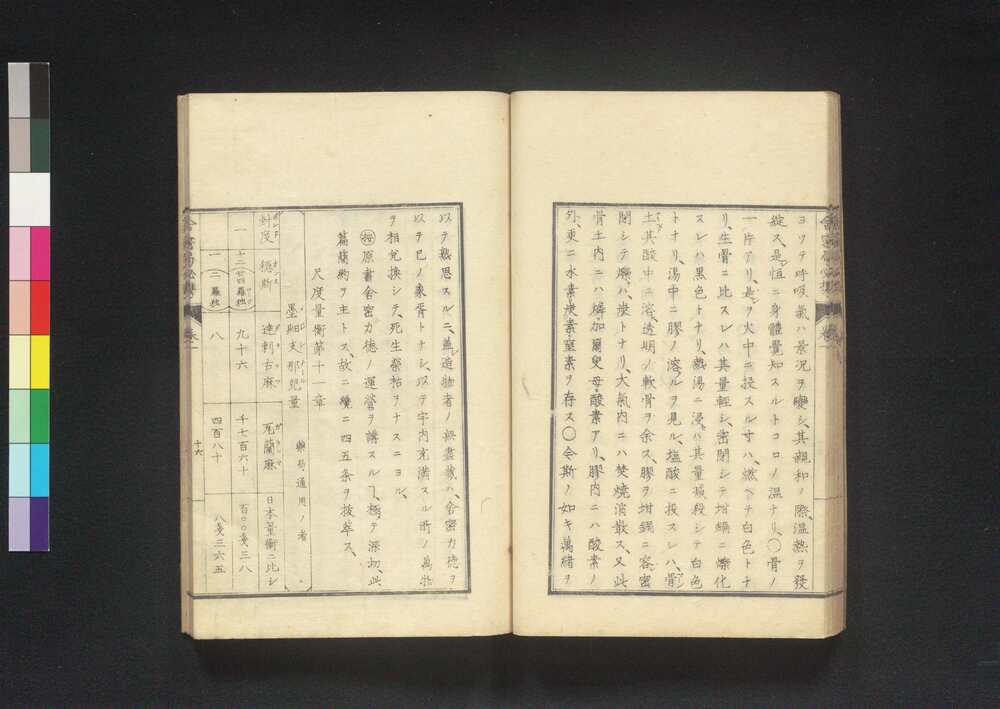 ヨツテ呼吸氣ハ景況ヲ變シ、其親和ノ際、温熱ヲ發
綻ス、是恒ニ身體覺知スルトコロノ温ナリ、〇骨ノ
一片アリ、是ヲ火中ニ投スル寸ハ、燃ヘテ白色トナ
リ、生骨ニ比スレハ其量輕シ、密閉シテ坩堝ニ爍化
スレハ黒色トナリ、熱湯ニ浸セハ其量損殺シテ白色
トナリ、湯中ニ膠ノ溶ルヲ見ル、塩酸ニ投スレハ、骨
土其酸中ニ溶、透明ノ軟骨ヲ余ス、膠ヲ坩鍋ニ容密
閉シテ爍ハ、炭トナリ、大氣内ニハ焚燒消散ス、又此
骨土内ニハ燐、加爾叟母、酸素アリ、膠内ニハ酸素ノ
外、更ニ水素炭素窒素ヲ存ス〇今斯ノ如キ萬緒ヲ
以テ熟思スルニ、蓋造物者ノ無盡藏ハ、舎密力徳ヲ
以テ己ノ象胥トナシ、以テ宇内充満スル所ノ萬物
ヲ相兌換シテ、死生榮枯ヲナスニヨル、
㊢原書舎密力徳ノ運營ヲ講スルヿ、極テ深切、此
篇簡約ヲ主トス、故ニ纔ニ四五条ヲ抜萃ス、
尺度量衡第十一章
藥局通用ノ者
封度 穏斯 達刺古麻 瓦蘭麻 日本量衡ニ比シ
一 十二 九十六 千七百六十 百〇〇戔三八
一 八 四百八十 八戔三六五
十六